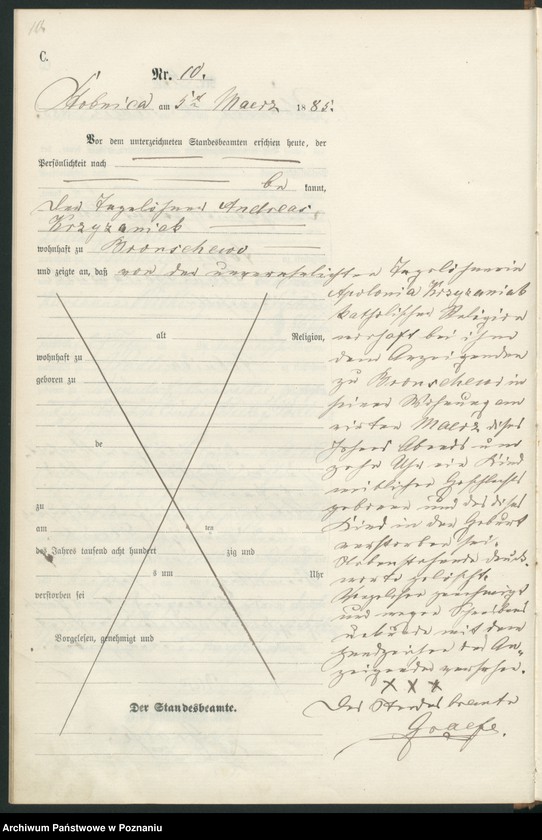 106
C.
Nr. 10.
Stobnica am 5t Maerz 1885.
Vor dem unterzeichneten Standesbeamten erschien heute, der
Persönlichkeit nach
be kannt,
der Tagelöhner Andreas
Krzyzaniak
wohnhaft zu Boruschewo
und zeigte an, daß von der unverehelichten Tagelöhnerin
Apolonia Krzyzaniak
katholischer Religion
wohnhaft bei ihm
dem Anzeigenden
zu Boruschewo in
seiner Wohnung am
vierten Maerz dieses
Jahres Abends um
zehn Uhr ein Kind
weiblichen Geschlechts
geboren und daß dieses
Kind in der Geburt
verstorben sei.
Nebenstehende Druck-
worte gelöscht.
Vorgelesen genehmigt
und wegen Schreibens
unkunde mit dem
Handzeichen des An-
zeigenden versehen.
X X X
Der Standesbeamte
Graefe.
alt Religion,
wohnhaft zu
geboren zu
de
zu
am ten
des Jahres tausend acht hundert zig und
s um Uhr
verstorben sei
Vorgelesen, genehmigt und
Der Standesbeamte.
Archiwum Państwowe w Poznaniu